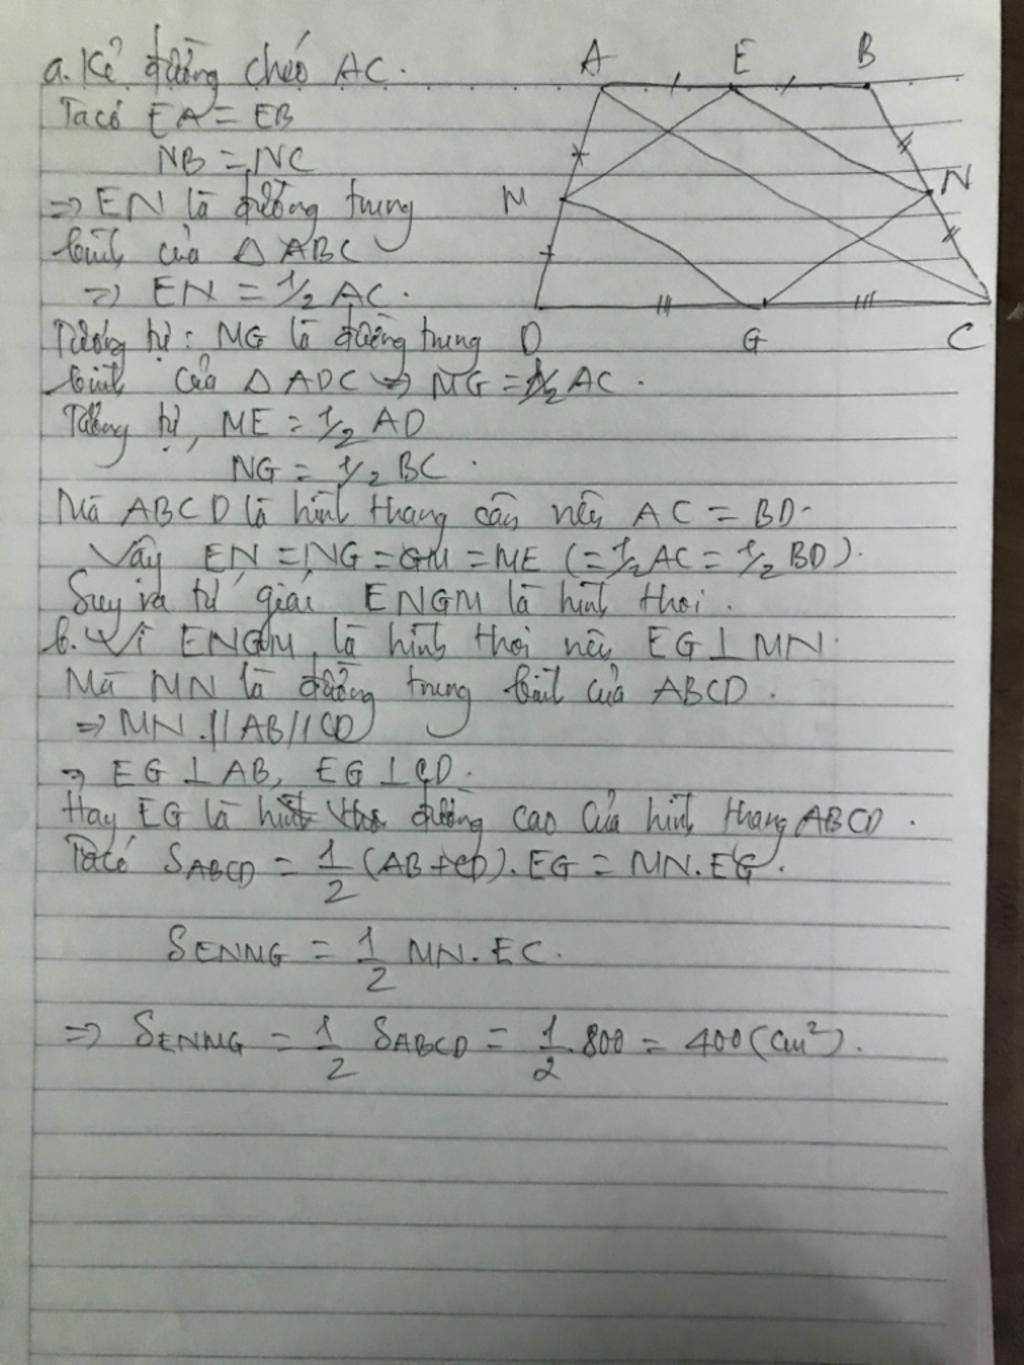 a. Kẻ đường chéo AC.
Ta có EA = EB
NB = NC
=> EN là đường trung
bình của △ ABC
=> EN = 1/2 AC.
Tương tự: MG là đường trung
bình của △ ADC => MG = 1/2 AC.
Tương tự, ME = 1/2 AD
NG = 1/2 BC.
Mà ABCD là hình thang cân nên AC = BD.
Vậy EN = NG = GM = ME (= 1/2 AC = 1/2 BD).
Suy ra tứ giác ENGM là hình thoi.
b. Vì ENGM là hình thoi nên EG ⊥ MN.
Mà MN là đường trung bình của ABCD.
=> MN // AB // CD
=> EG ⊥ AB, EG ⊥ CD.
Hay EG là đường cao của hình thang ABCD.
Ta có S_ABCD = 1/2 (AB + CD). EG = MN. EG.
S_ENMG = 1/2 MN. EC.
=> S_ENMG = 1/2 S_ABCD = 1/2 .800 = 400 (cm²).
A E B
M N
D G C